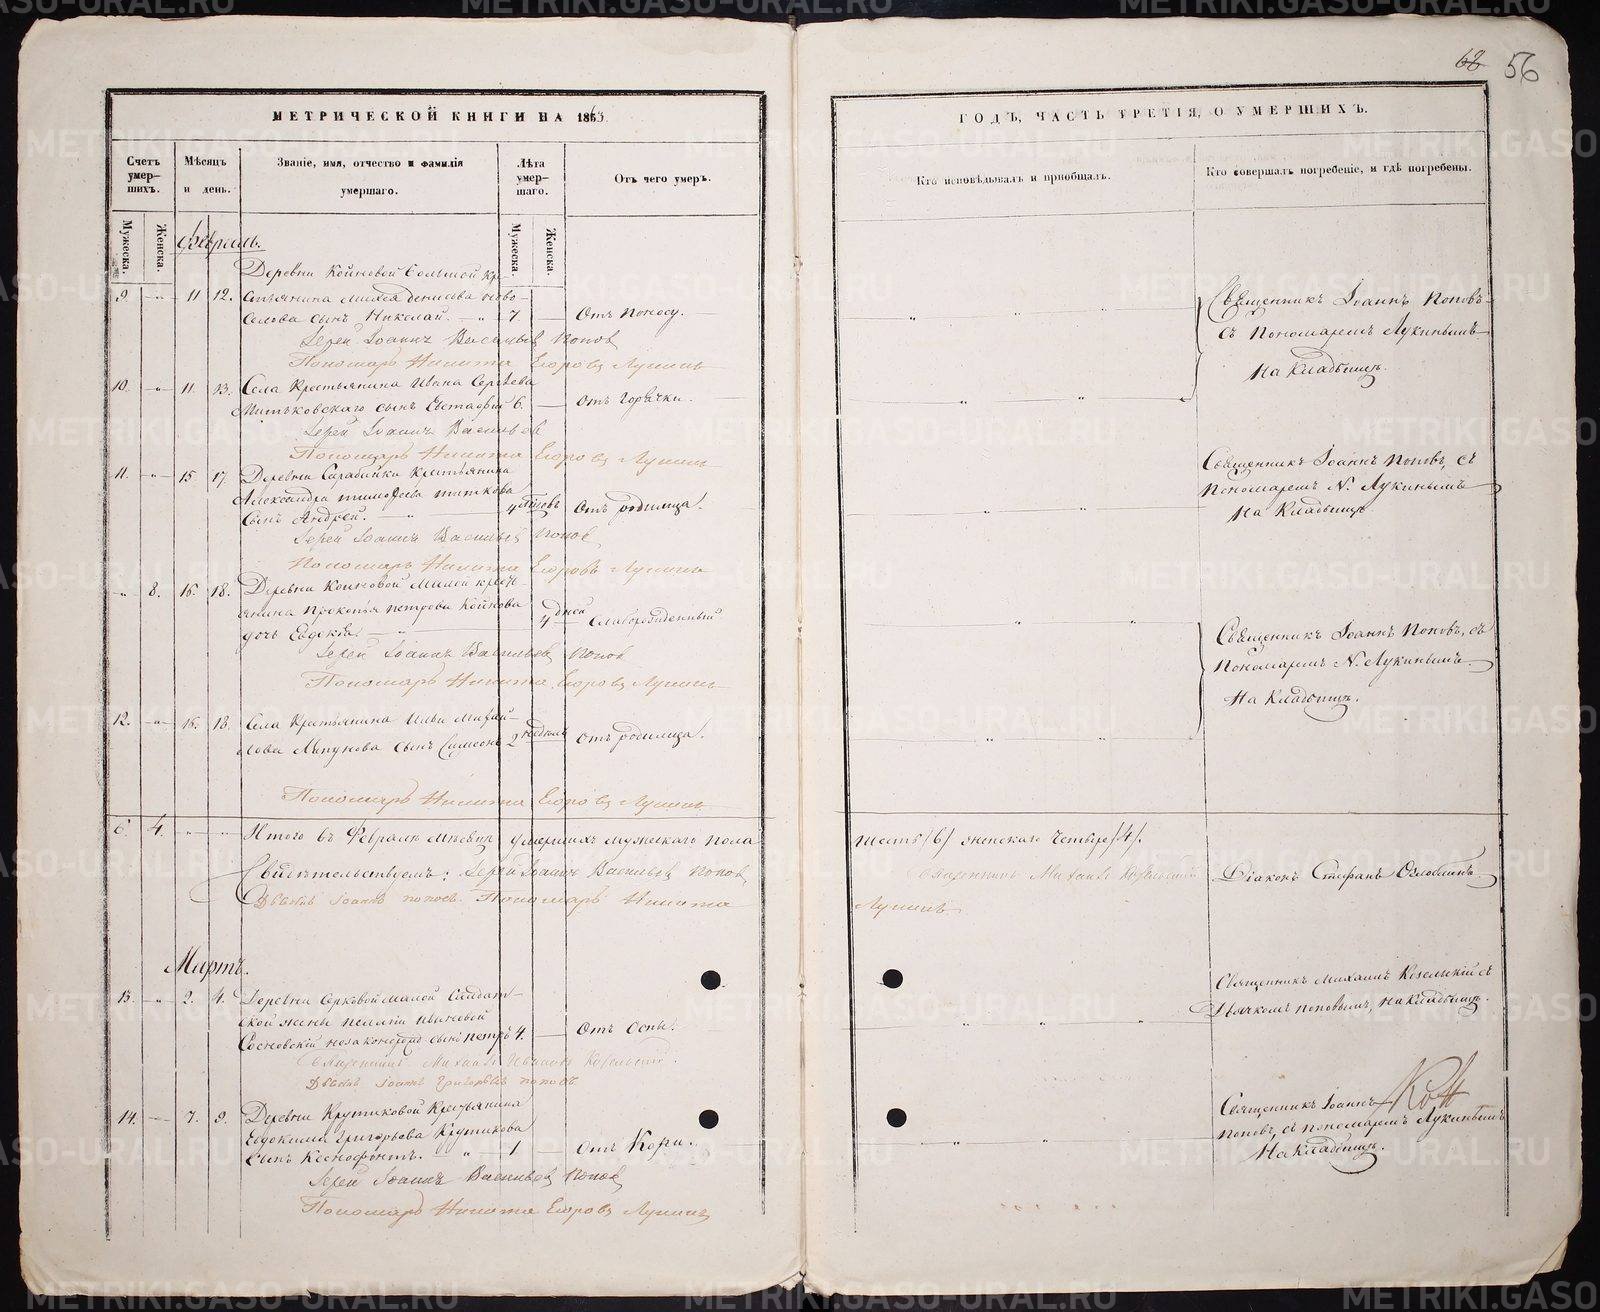 68 56
МЕТРИЧЕСКОЙ КНИГИ НА 1863
ГОДЪ, ЧАСТЬ ТРЕТІЯ, О УМЕРШИХЪ.
Счетъ умер-шихъ.
Мѣсяцъ и день.
Званіе, имя, отчество и фамилія умершаго.
Лѣта умер-шаго.
Отъ чего умеръ.
Кто исповѣдывалъ и пріобщалъ.
Кто совершалъ погребеніе, и гдѣ погребены.
Мужеска.
Женска.
Мужеска.
Женска.
Февраль.
Деревни Койновой Большой кре-
9. " 11 12. стьянина
сынъ Николай. " 7 — Отъ поносу.
Священникъ Іоаннъ Поповъ
съ Пономаремъ Лукинымъ
На Кладбищѣ.
Іерей Іоаннъ Васильевъ Поповъ
Пономарь Никита Егоровъ Лукинъ
10. " 11. 13. Села Крестьянина Ивана Сергѣева
Митьковскаго сынъ Евстафій 6. — Отъ горячки.
Іерей Іоаннъ Васильевъ
Пономарь Никита Егоровъ Лукинъ
11. " 15 17. Деревни Сарабайки Крестьянина
Александра Тимофеева
сынъ Андрей. " 4 Отъ родимца.
Священникъ Іоаннъ Поповъ, съ
Пономаремъ N. Лукинымъ
На Кладбищѣ
Іерей Іоаннъ Васильевъ Поповъ
Пономарь Никита Егоровъ Лукинъ
" 8. 16. 18. Деревни Койновой Малой крест-
янина Прокопья Петрова Койнова
дочь Евдокія. " 4 дней Слаборожденный
Священникъ Іоаннъ Поповъ, съ
Пономаремъ N. Лукинымъ
На Кладбищѣ.
Іерей Іоаннъ Васильевъ Поповъ
Пономарь Никита Егоровъ Лукинъ
12. " 16. 18. Села Крестьянина Ильи Михай-
лова сынъ Симеонъ 2 недѣли Отъ родимца.
Пономарь Никита Егоровъ Лукинъ
6. 4. " " Итого въ Февралѣ мѣсяцѣ умершихъ мужескаго пола
шесть /6/ женскаго четыре /4/.
Свидѣтельствуемъ: Іерей Іоаннъ Васильевъ Поповъ,
Священникъ Михаилъ Козельскій Діаконъ Стефанъ
Дьячекъ Іоаннъ Поповъ. Пономарь Никита
Лукинъ
Мартъ.
13. " 2. 4. Деревни Серковой малой Солдат-
ской жены Ивановой
Сосновской незаконорожд. сынъ Петръ 4. — Отъ Оспы.
Священникъ Михаилъ Козельскій съ
Дьячкомъ Поповымъ, на Кладбищѣ.
Священникъ Михаилъ Ивановъ Козельскій.
Дьячекъ Іоаннъ Григорьевъ Поповъ
14. — 7. 9. Деревни Крутиковой Крестьянина
Евдокима Григорьева Крутикова
сынъ Ксенофонтъ. " 1 — Отъ Кори.
Священникъ Іоаннъ
Поповъ, съ пономаремъ Лукинымъ
На Кладбищѣ.
Іерей Іоаннъ Васильевъ Поповъ
Пономарь Никита Егоровъ Лукинъ
METRIKI.GASO-URAL.RU